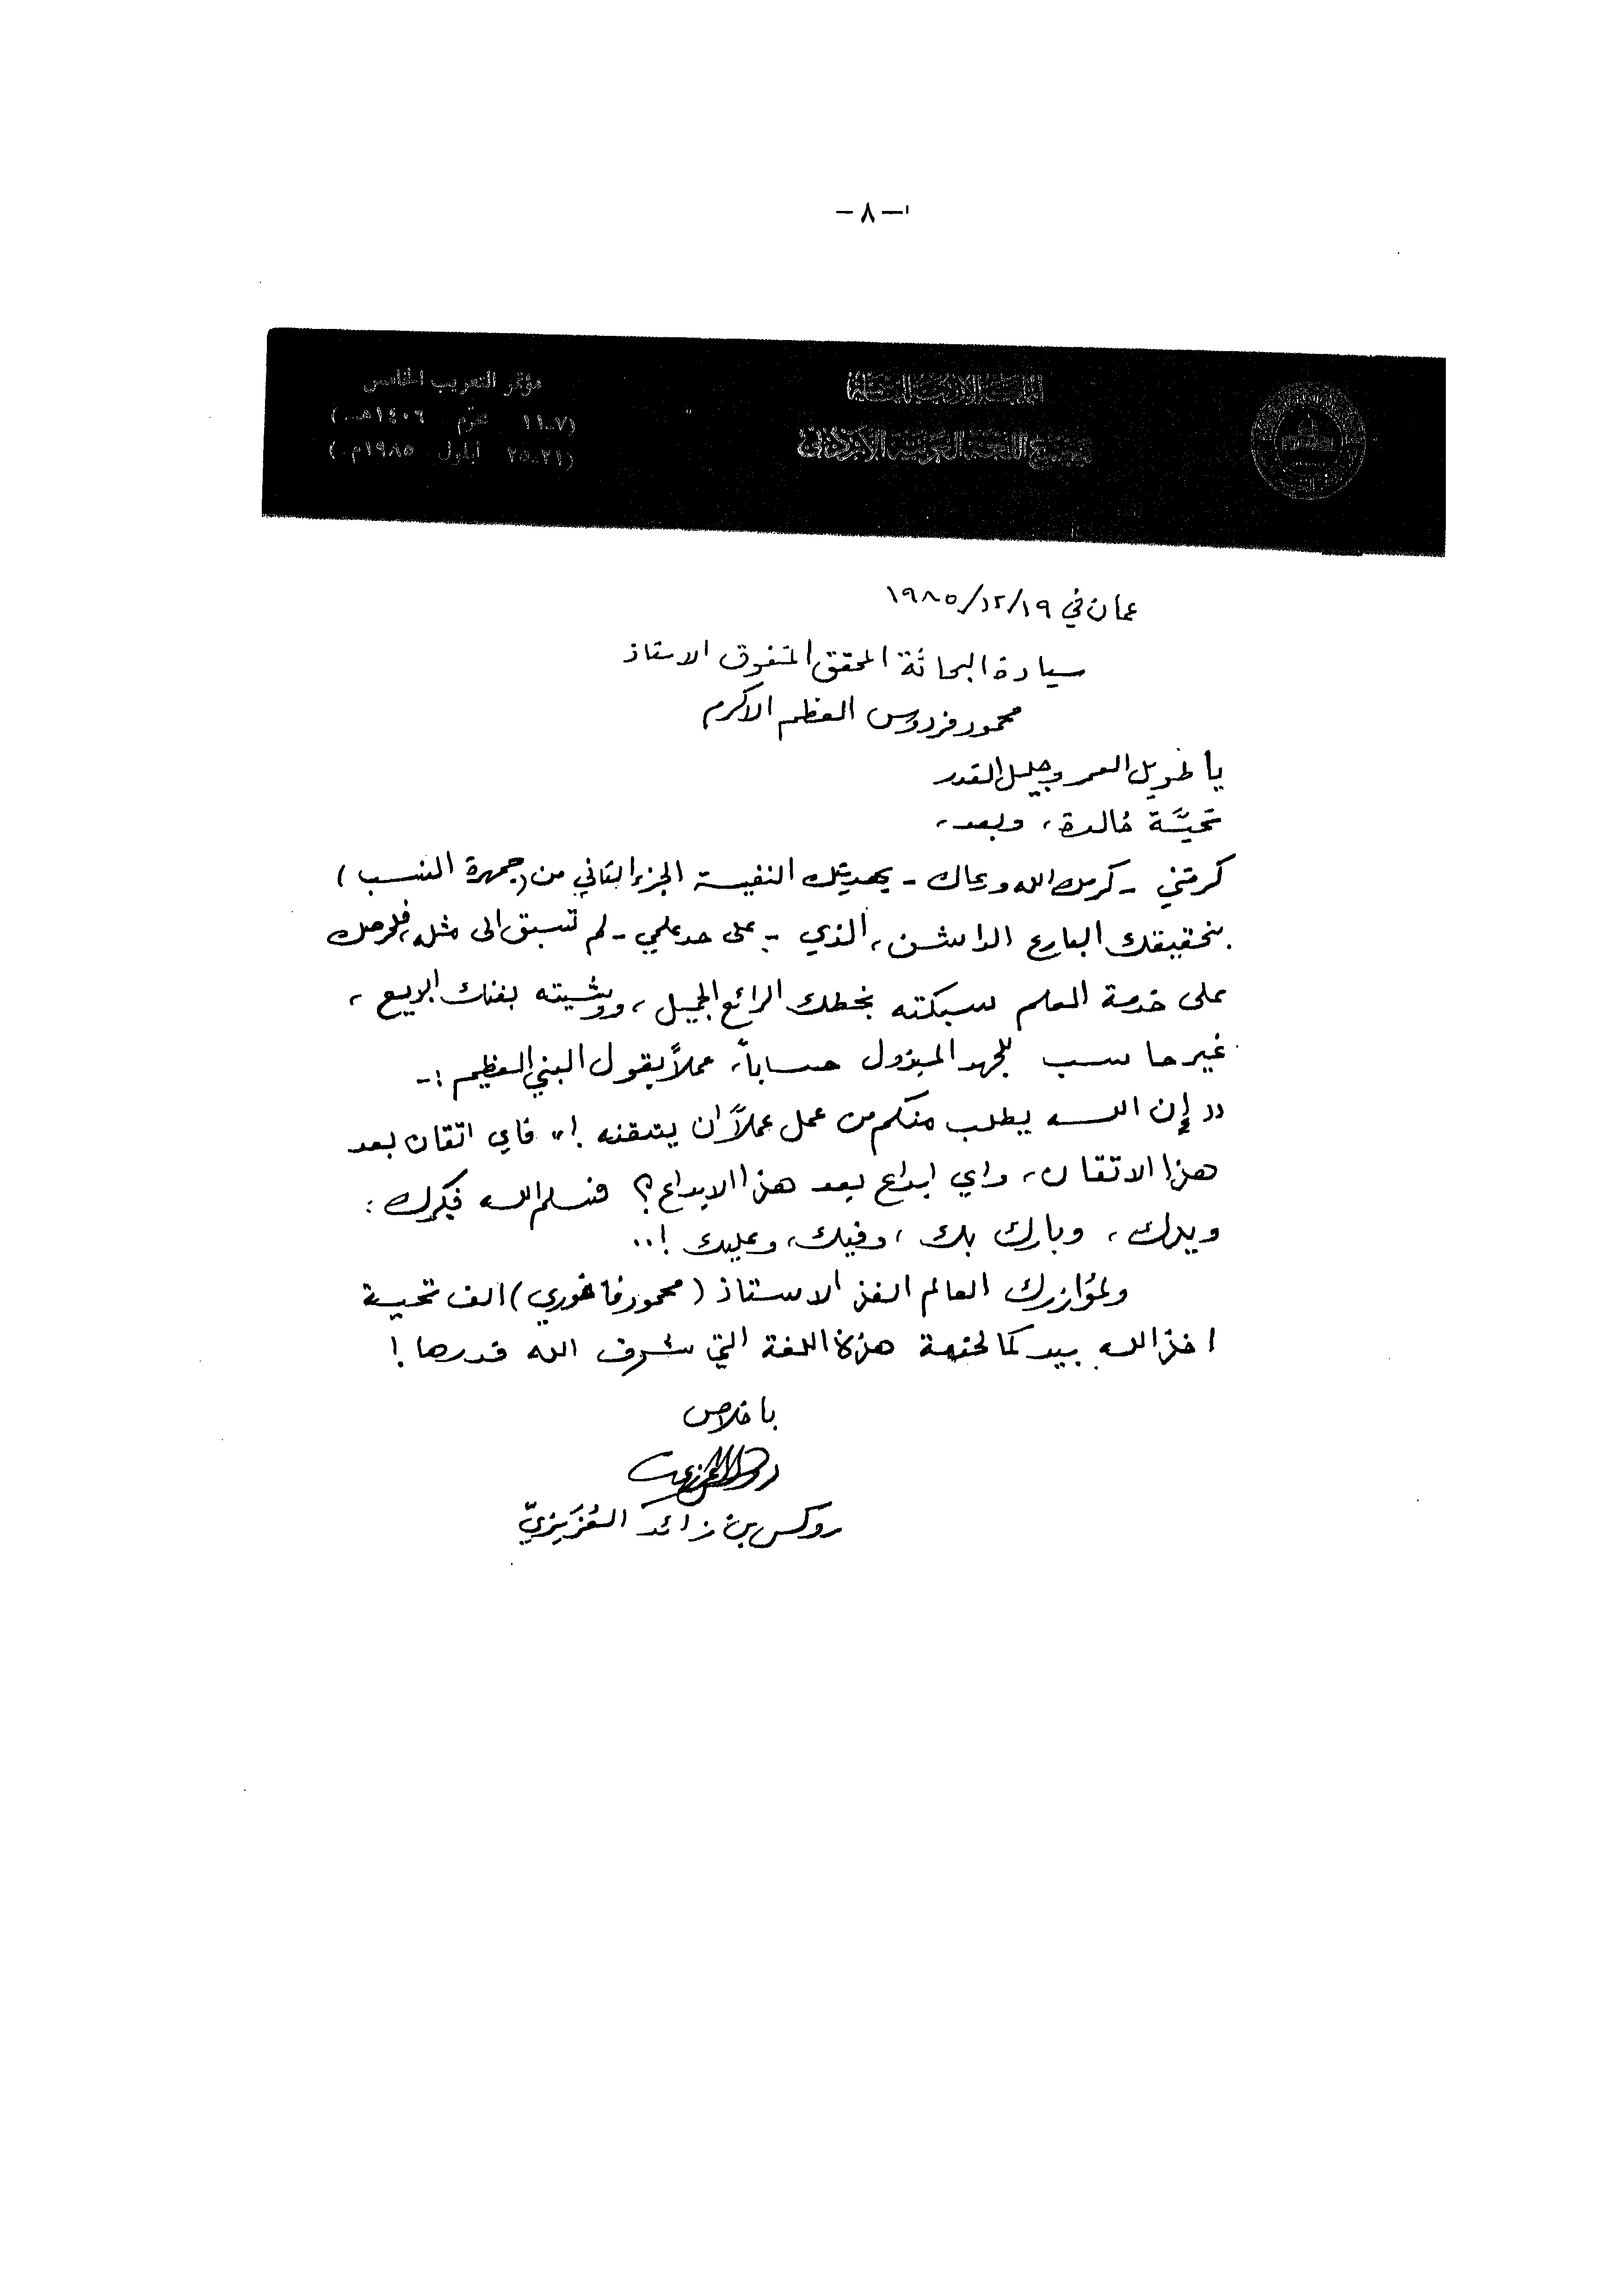 -٨-
المملكة الأردنية الهاشمية
مجمع اللغة العربية الأردني
مؤتمر التعريب الخامس
(٧-١١ محرّم ١٤٠٦هـ.)
(٢١-٢٥ أيلول ١٩٨٥م.)
عمان في ١٩/١٢/١٩٨٥
سيادة البحاثة المحقق المتفوق الاستاذ
محمود فردوس العظم الاكرم
يا طويل العمر وجليل القدر
تحيَّة خالدة، وبعد،
كرمتني - كرمك الله ورعاك - بهديتك النفيسة الجزء الثاني من (جمهرة النسب)
بتحقيقك البارع الدامشن، الذي - على حد علمي - لم تسبق الى مثله، فلحرصك
على خدمة العلم سبكته بخطك الرائع الجميل، ووشيته بفنك البديع،
غير حاسب للجهد المبذول حساباً، عملاً بقول النبي العظيم :-
"إن الله يطلب منكم من عمل عملاً ان يتقنه !" فاي اتقان بعد
هذا الاتقان، واي ابداع بعد هذا الابداع؟ فسلم الله فكرك :
ويدك، وبارك بك، وفيك، وعليك !..
ولمؤازرك العالم الفذ الاستاذ (محمود فاخوري) الف تحية
اخذ الله بيدكما لخدمة هذه اللغة التي شرف الله قدرها !
باخلاص
روكس بن زائد العُزَيزيّ